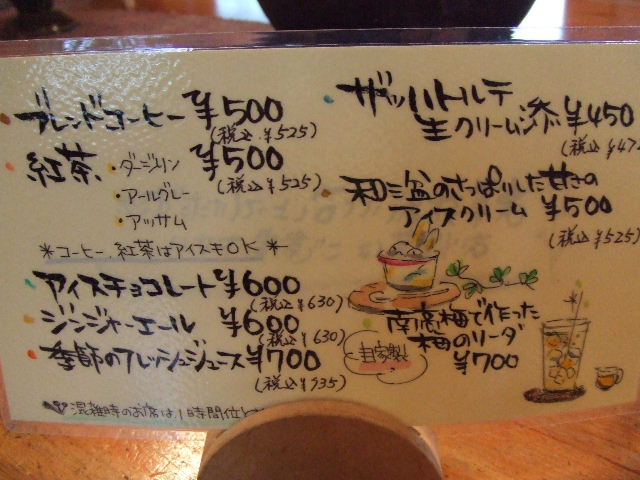 ブレンドコーヒー ¥500
(税込¥525)
紅茶 ・ダージリン ¥500
(税込¥525)
・アールグレー
・アッサム
＊コーヒー、紅茶はアイスもOK＊
アイスチョコレート ¥600
(税込¥630)
ジンジャーエール ¥600
(税込¥630)
季節のフレッシュジュース ¥700
(税込¥935)
混雑時のお席は、1時間位と
ザッハトルテ
生クリーム添 ¥450
(税込¥47
和三盆のさっぱりした甘さの
アイスクリーム ¥500
(税込¥525)
南高梅で作った
梅のソーダ
自家製
¥700